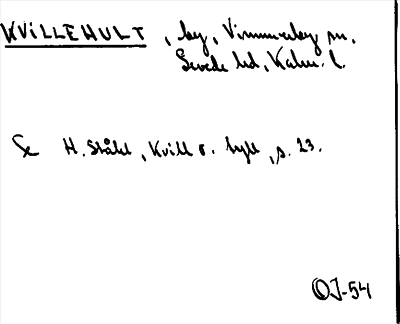 KVILLEHULT, by, Vimmerby sn,
Sevede hd, Kalm. l.
Se H. Ståhl, Kvill o. hyll, s. 23.
OJ-54